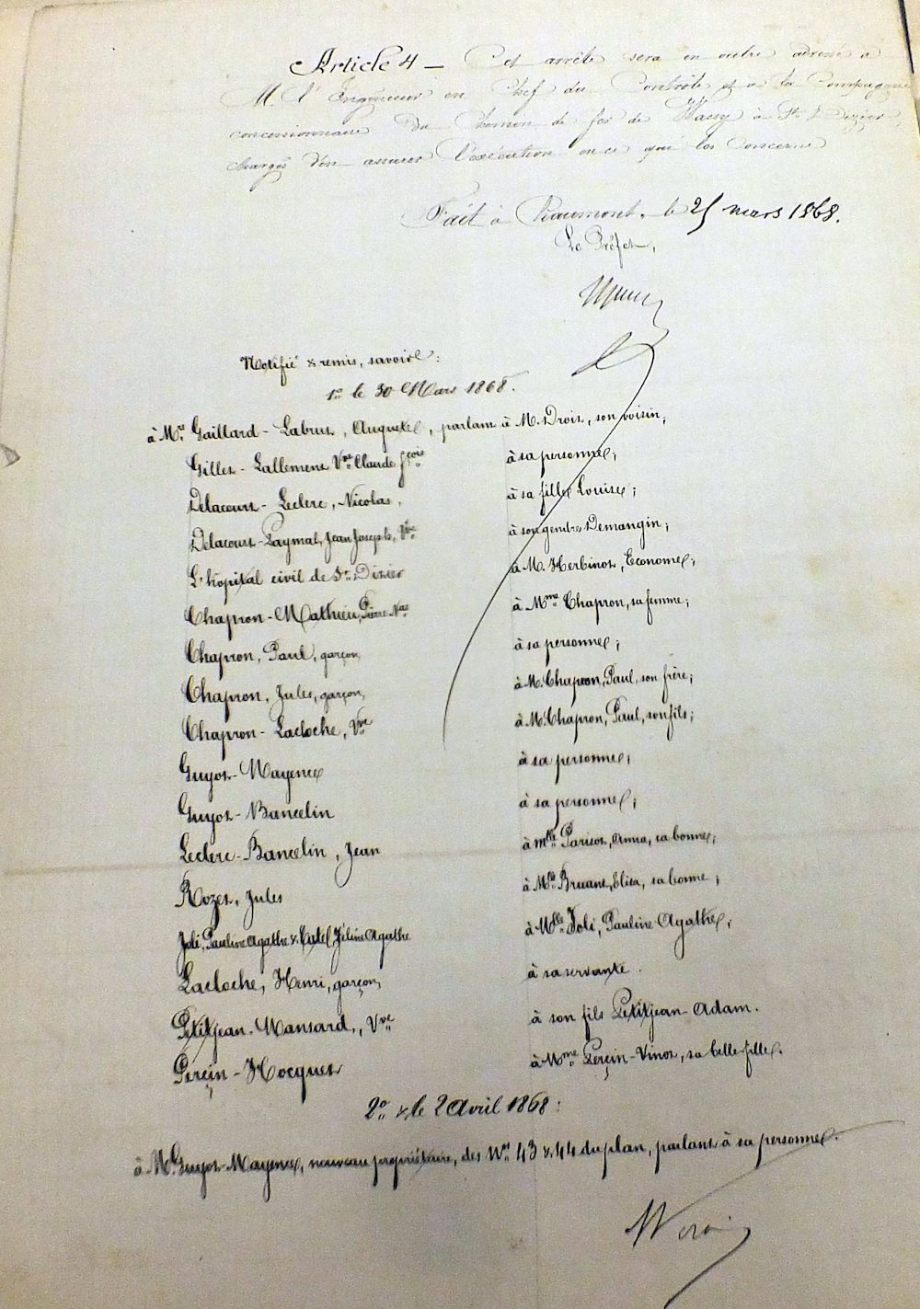 Article 4 — Cet arrêté sera en outre adressé à
M. l'Ingénieur en Chef du Contrôle et à la Compagnie
concessionnaire du Chemin de fer de Wassy à St. Dizier,
chargés d'en assurer l'exécution en ce qui les concerne
Fait à Chaumont, le 25 mars 1868.
Le Préfet,
Notifié & remis, savoir :
1o le 30 Mars 1868.
à Mrs Gaillard-Labrus, Auguste, parlant à M. Drois, son voisin,
Gilles-Lallement Vve Claude fçois à sa personne;
Delacourt-Leclerc, Nicolas, à sa fille Louise;
Delacourt-Paymal, Jean Joseph, Vve à son gendre Demangin;
L'hopital civil de St. Dizier à M. Herbinot, Econome;
Chapron-Mathieu, Pierre Nas à Mme Chapron, sa femme;
Chapron, Paul, garçon, à sa personne;
Chapron, Jules, garçon, à M. Chapron, Paul, son frère;
Chapron-Lacloche, Vve à M. Chapron, Paul, son fils;
Guyot-Mayence à sa personne;
Guyot-Bancelin à sa personne;
Leclerc-Bancelin, Jean à Mlle Parisot, Anna, sa bonne;
Rozet, Jules à Mlle Bruant, Elisa, sa bonne;
Joli, Pauline Agathe & Zéline Agathe à Mlle Joli, Pauline Agathe;
Lacloche, Henri, garçon, à sa servante.
Petitjean-Mansard, Vve à son fils Petitjean-Adam.
Perçin-Hocquet à Mme Perçin-Vinot, sa belle-fille.
2o & le 2 Avril 1868 :
à M. Guyot-Mayence, nouveau propriétaire, des Nos 43 & 44 du plan, parlant à sa personne.